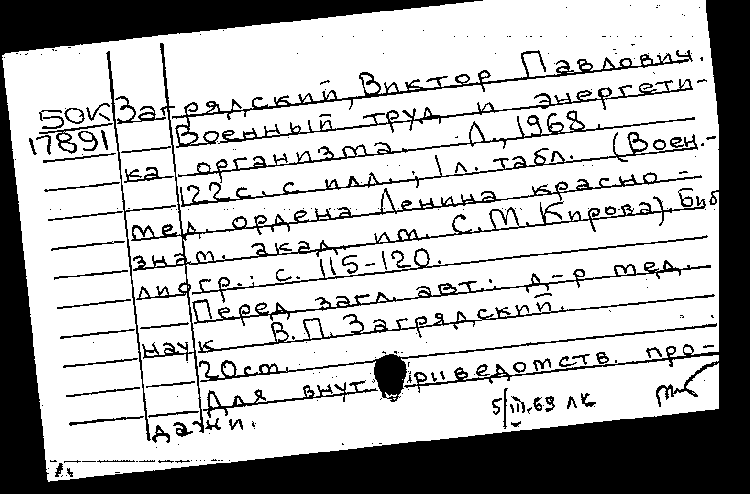 50К Загрядский, Виктор Павлович.
17891 Военный труд и энергети-
ка организма. Л., 1968.
122 с. с илл.; 1 л. табл. (Воен.-
мед. ордена Ленина красно-
знам. акад. им. С.М. Кирова). Биб
лиогр.: с. 115-120.
Перед загл. авт.: д-р мед.
наук В.П. Загрядский.
20 см.
Для внут риведомств. про-
дажи.
5/III.69 ЛК